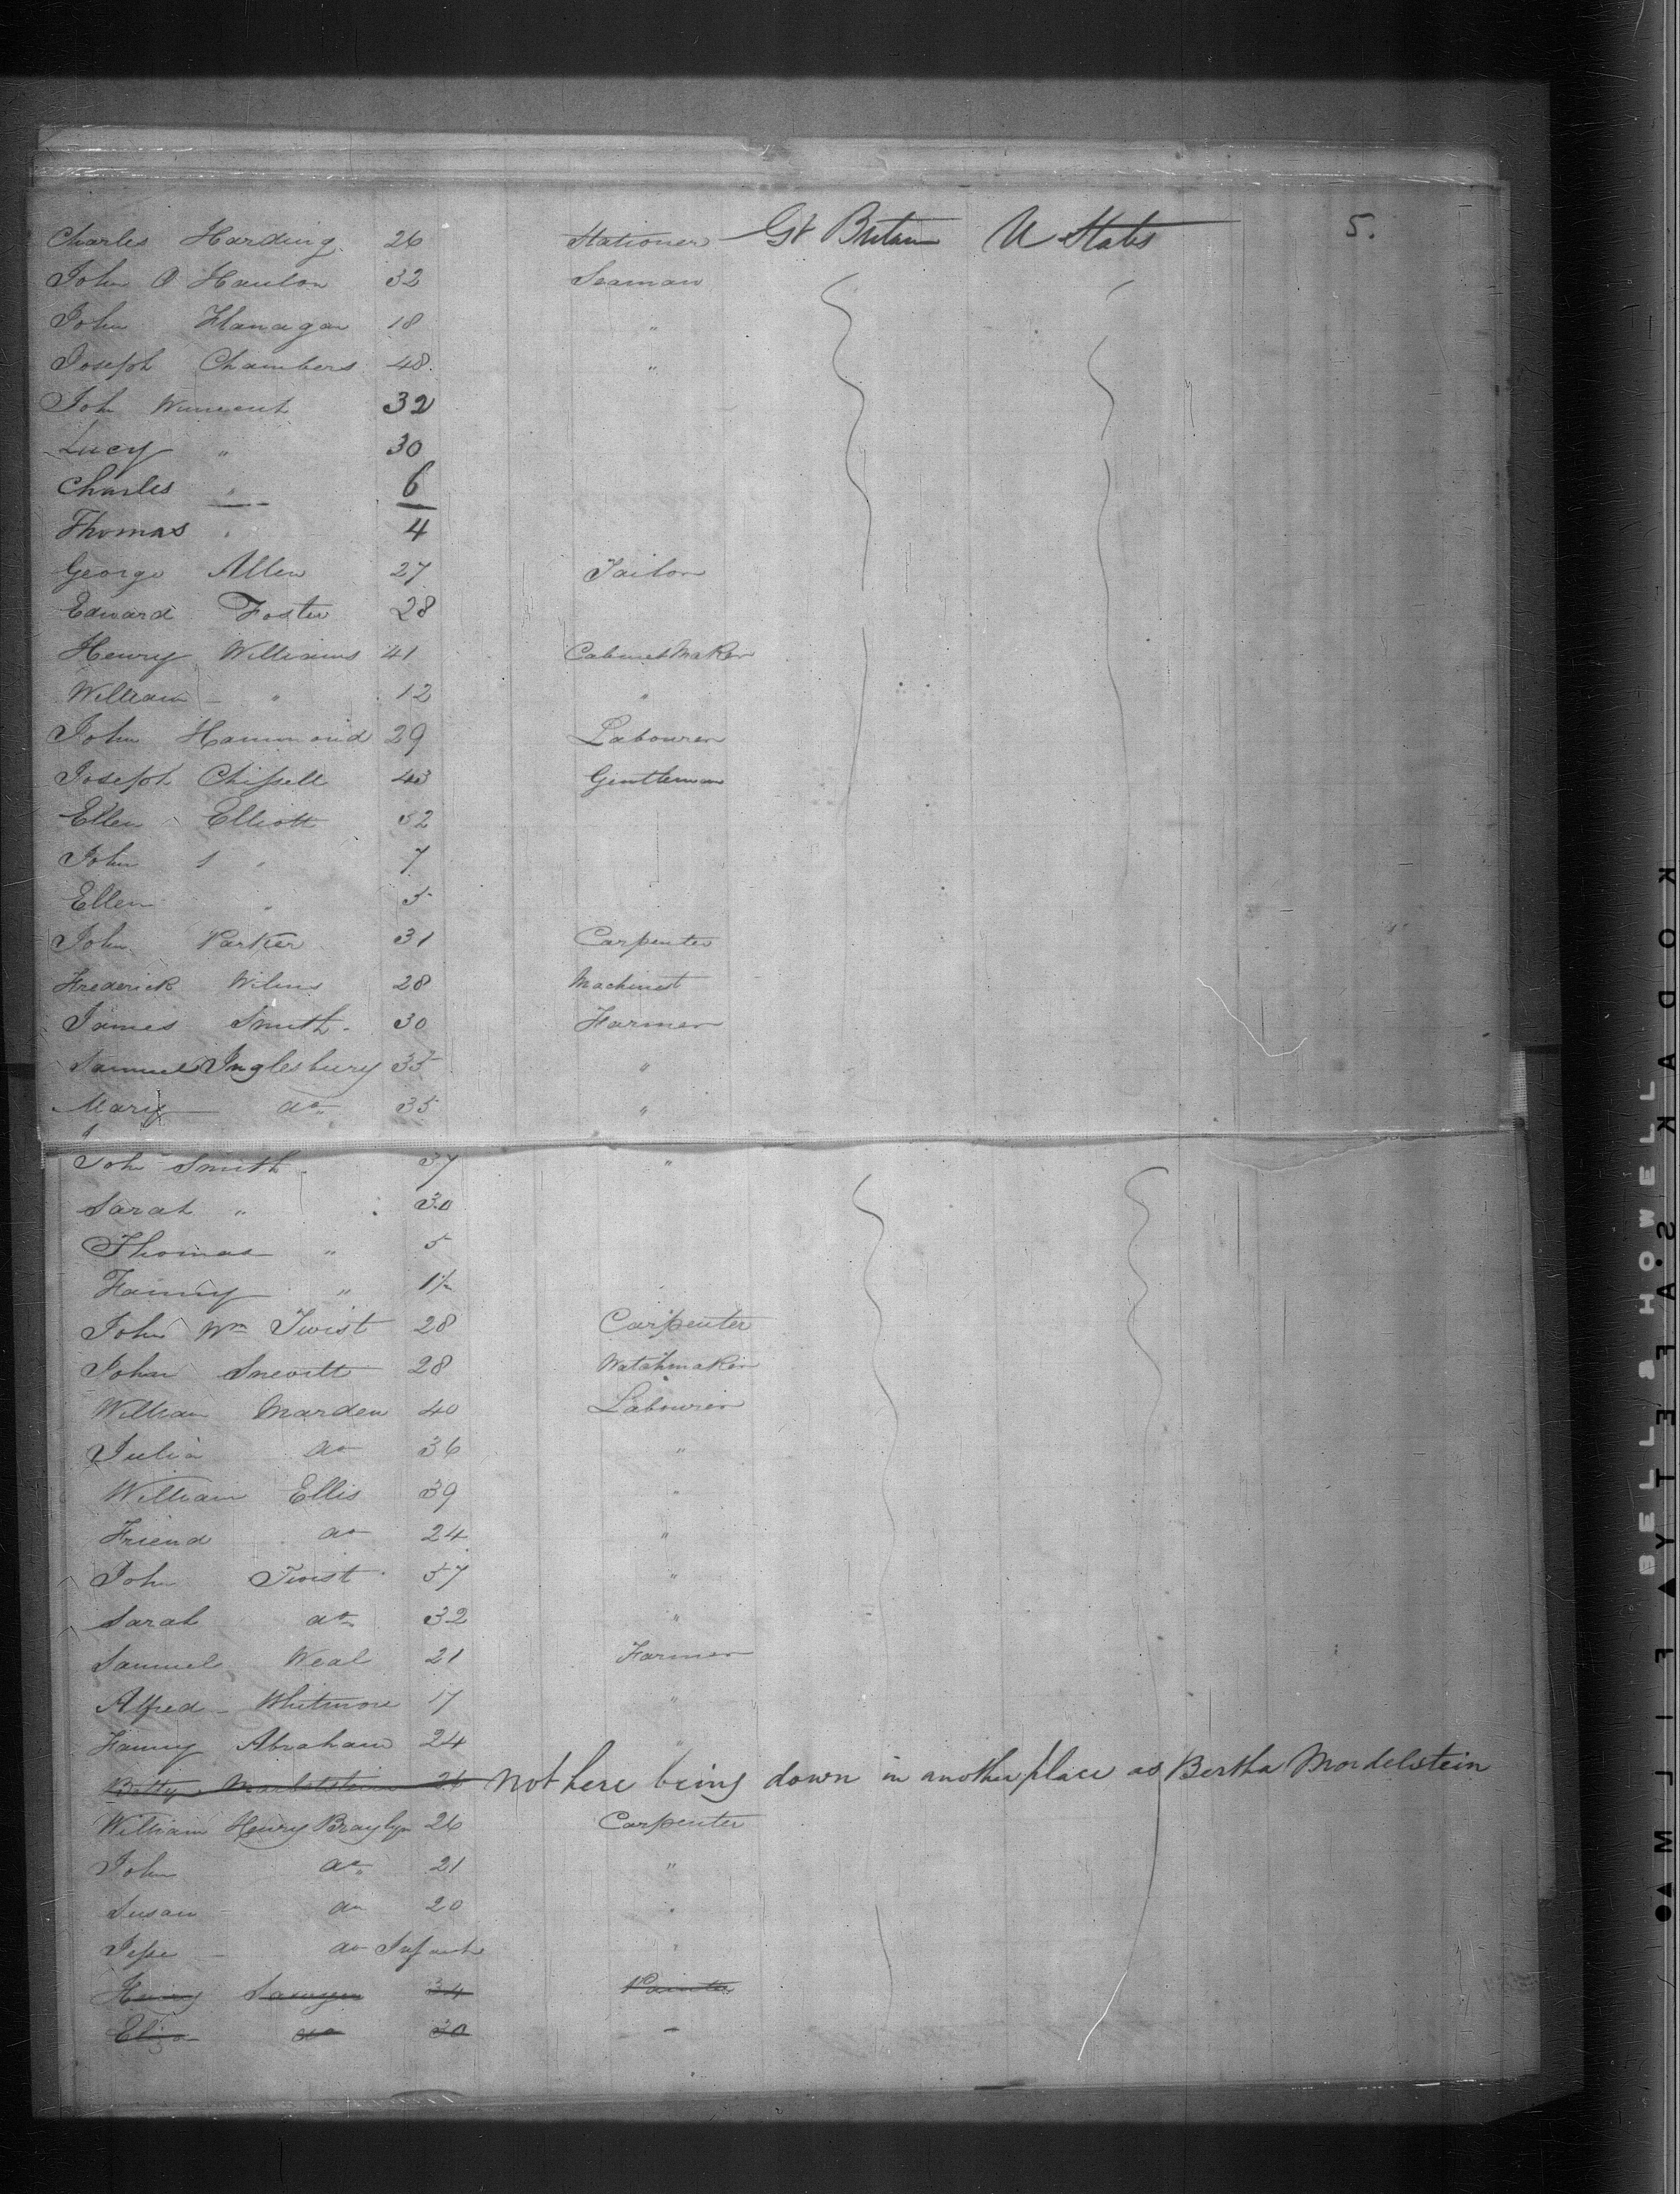 Charles Harding 26 Stationer Gt Britain U States 5.
John O Hanlon 32 Seaman
John Flanagan 18 "
Joseph Chambers 48 "
Joh 32
Lucy " 30
Charles " 6
Thomas " 4
George Allen 27 Tailor
Edward Foster 28
Henry Williams 41 Cabinet Maker
William " 12 "
John Hammond 29 Labourer
Joseph Chissell 43 Gentleman
Ellen Elliott 32
John " 7
Ellen " 5
John Parker 31 Carpenter
Frederick 28 Machinest
James Smith 30 Farmer
Samuel Inglesbury 35 "
Mary do 35 "
John Smith 37 "
Sarah " 30
Thomas " 5
Fanny " 1½
John Wm Twist 28 Carpenter
John 28 Watchmaker
William Marden 40 Labourer
Julia do 36 "
William Ellis 39 "
Friend do 24 "
John Twist 57 "
Sarah do 32 "
Samuel Weal 21 Farmer
Alfred Whitmore 17 "
Fanny Abraham 24 "
Betty 26 not here being down in another place as Bertha Mordelstein
William Henry 26 Carpenter
John do 21 "
Susan do 20 "
Jesse do Infant "
Henry Sawyer 34 Painter
Eliza do 30